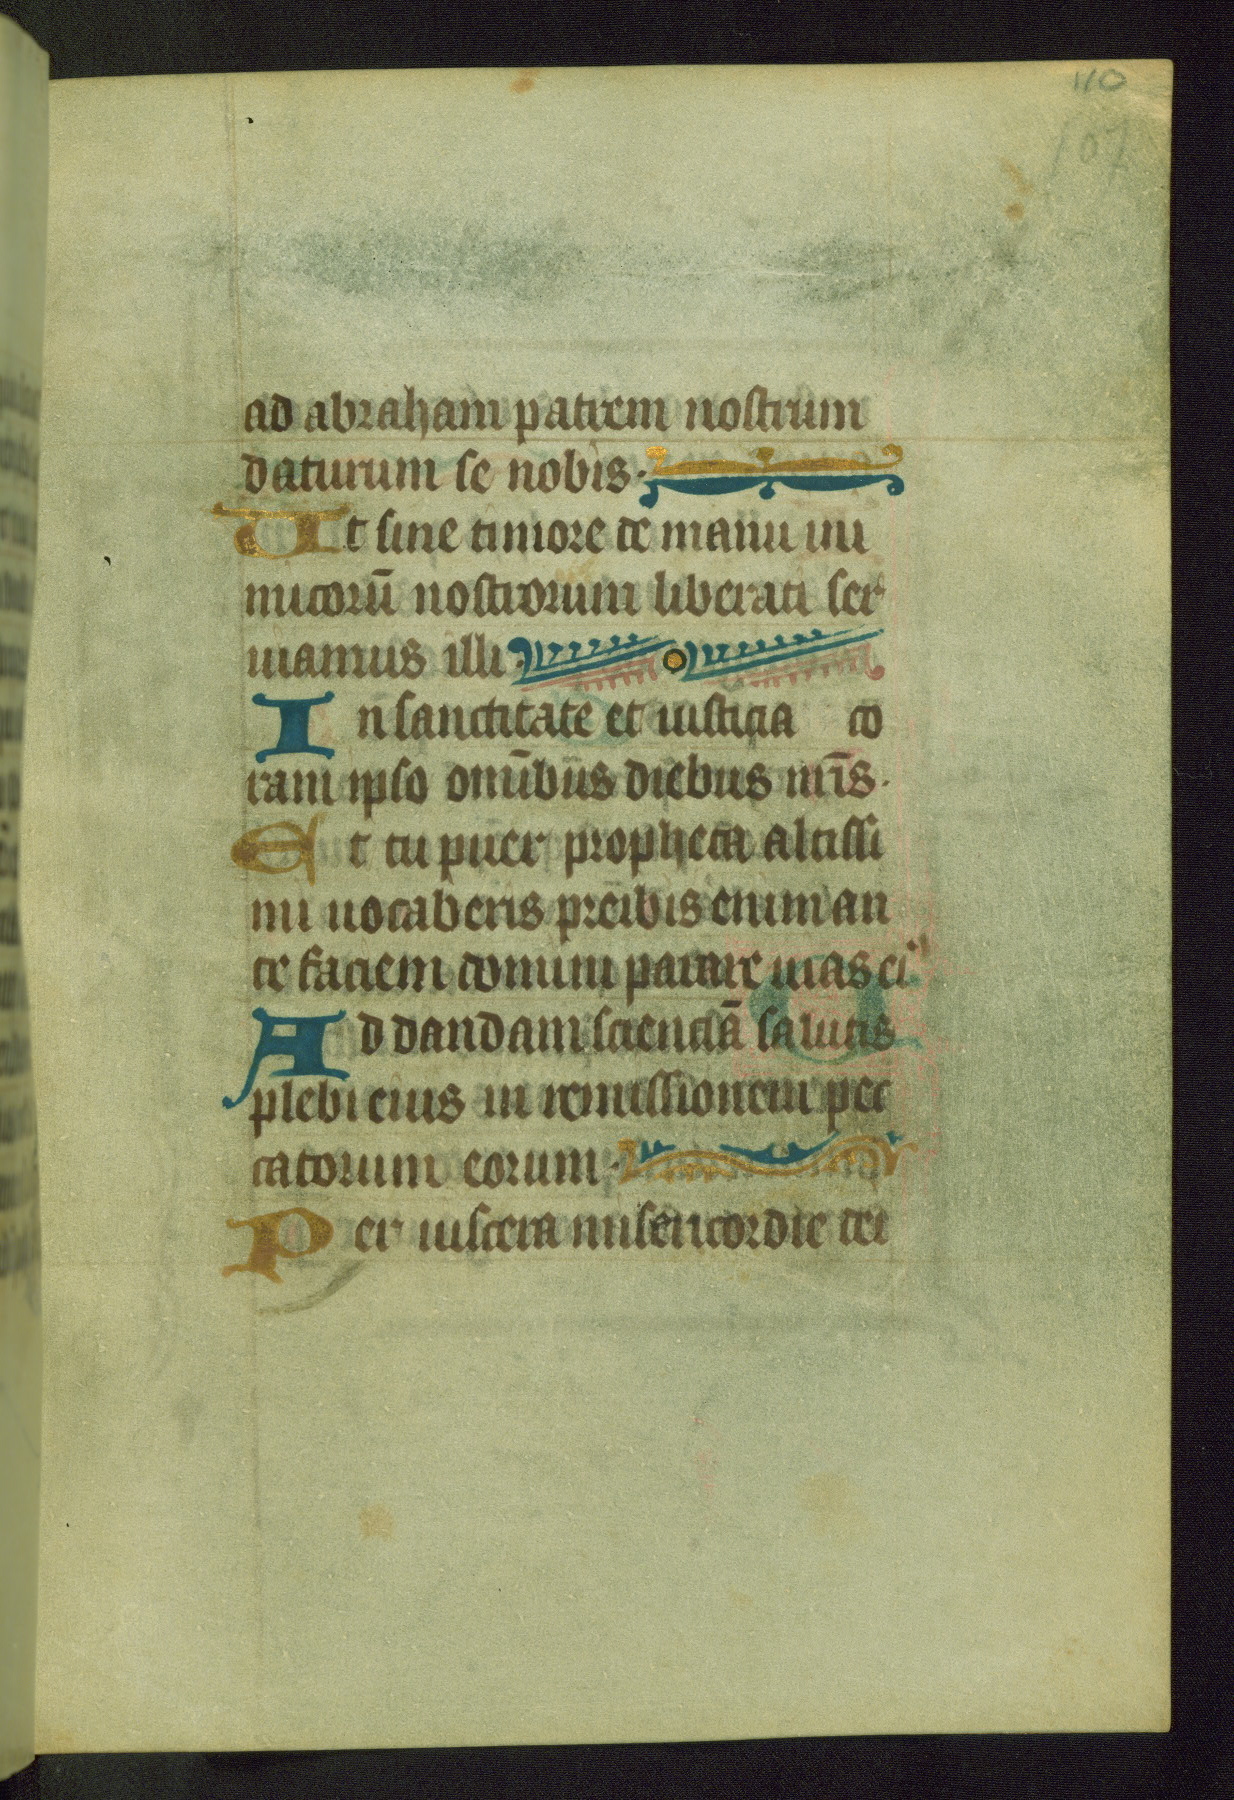 110
107
ad abraham patrem nostrum
daturum se nobis·
Ut sine timore de manu ini
micorū nostrorum liberati ser
uiamus illi·
In sanctitate et iusticia co
ram ipso omībus diebus nr̄is·
Et tu puer propheta altissi
mi uocaberis preibis enim an
te faciem domini parare uias ei'
Ad dandam scienciā salutis
plebi eius in remissionem pec
catorum eorum·
Per uiscera misericordie dei